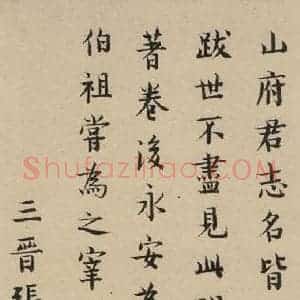 山府君志名皆
跋世不盡見此
著卷後永安
伯祖嘗為之宰
三晉張
Shufaziliao.COM